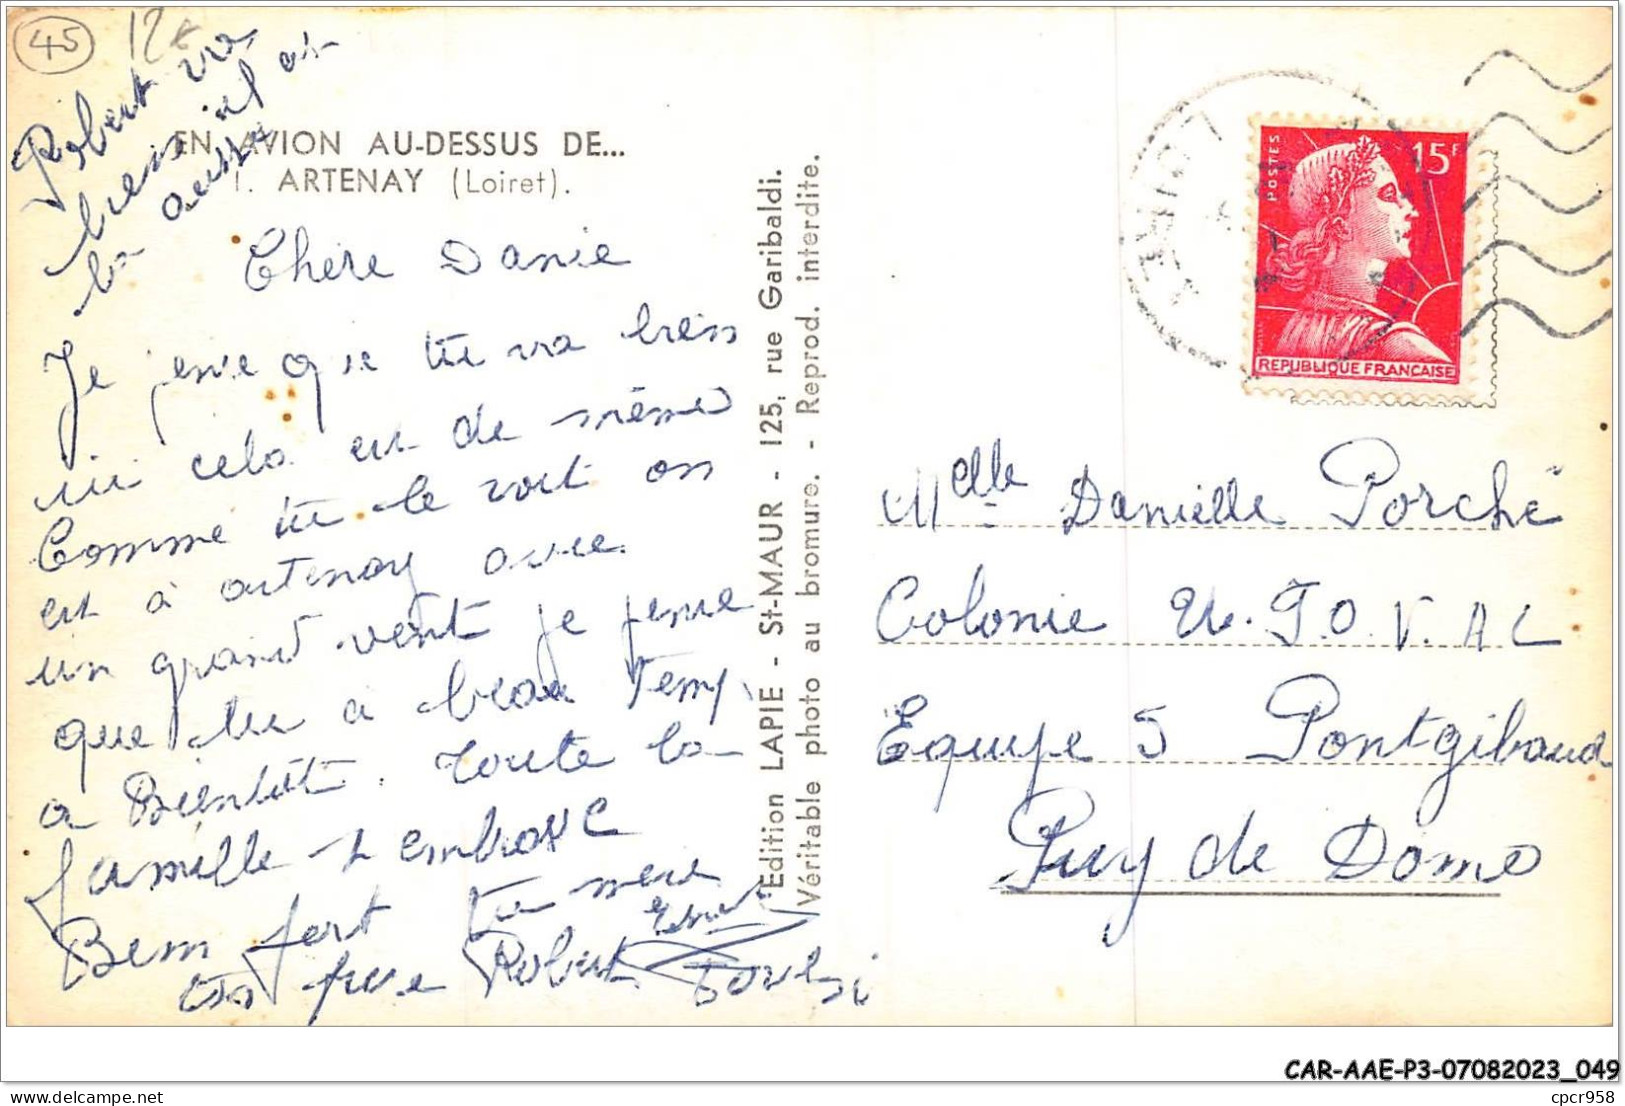 45
12€
Robert va
bien il est
la aussi
EN AVION AU-DESSUS DE...
1. ARTENAY (Loiret).
Chère Danie
Je pense que tu va bien
ici cela est de même
Comme tu le voit on
est à artenay avec
un grand vent je pense
que tu a beau Temp.
a Bientôt. Toute la
famille t embrasse
Bien fort ta mere
ton frere Robert
Edition LAPIE - St-MAUR - 125, rue Garibaldi.
Véritable photo au bromure. - Reprod. interdite.
LOIRET
POSTES
15F
REPUBLIQUE FRANÇAISE
Melle Danielle Porché
Colonie U.T.O.V.AL
Equipe 5 Pontgibaud
Puy de Dome
CAR-AAE-P3-07082023_049
cpcr958